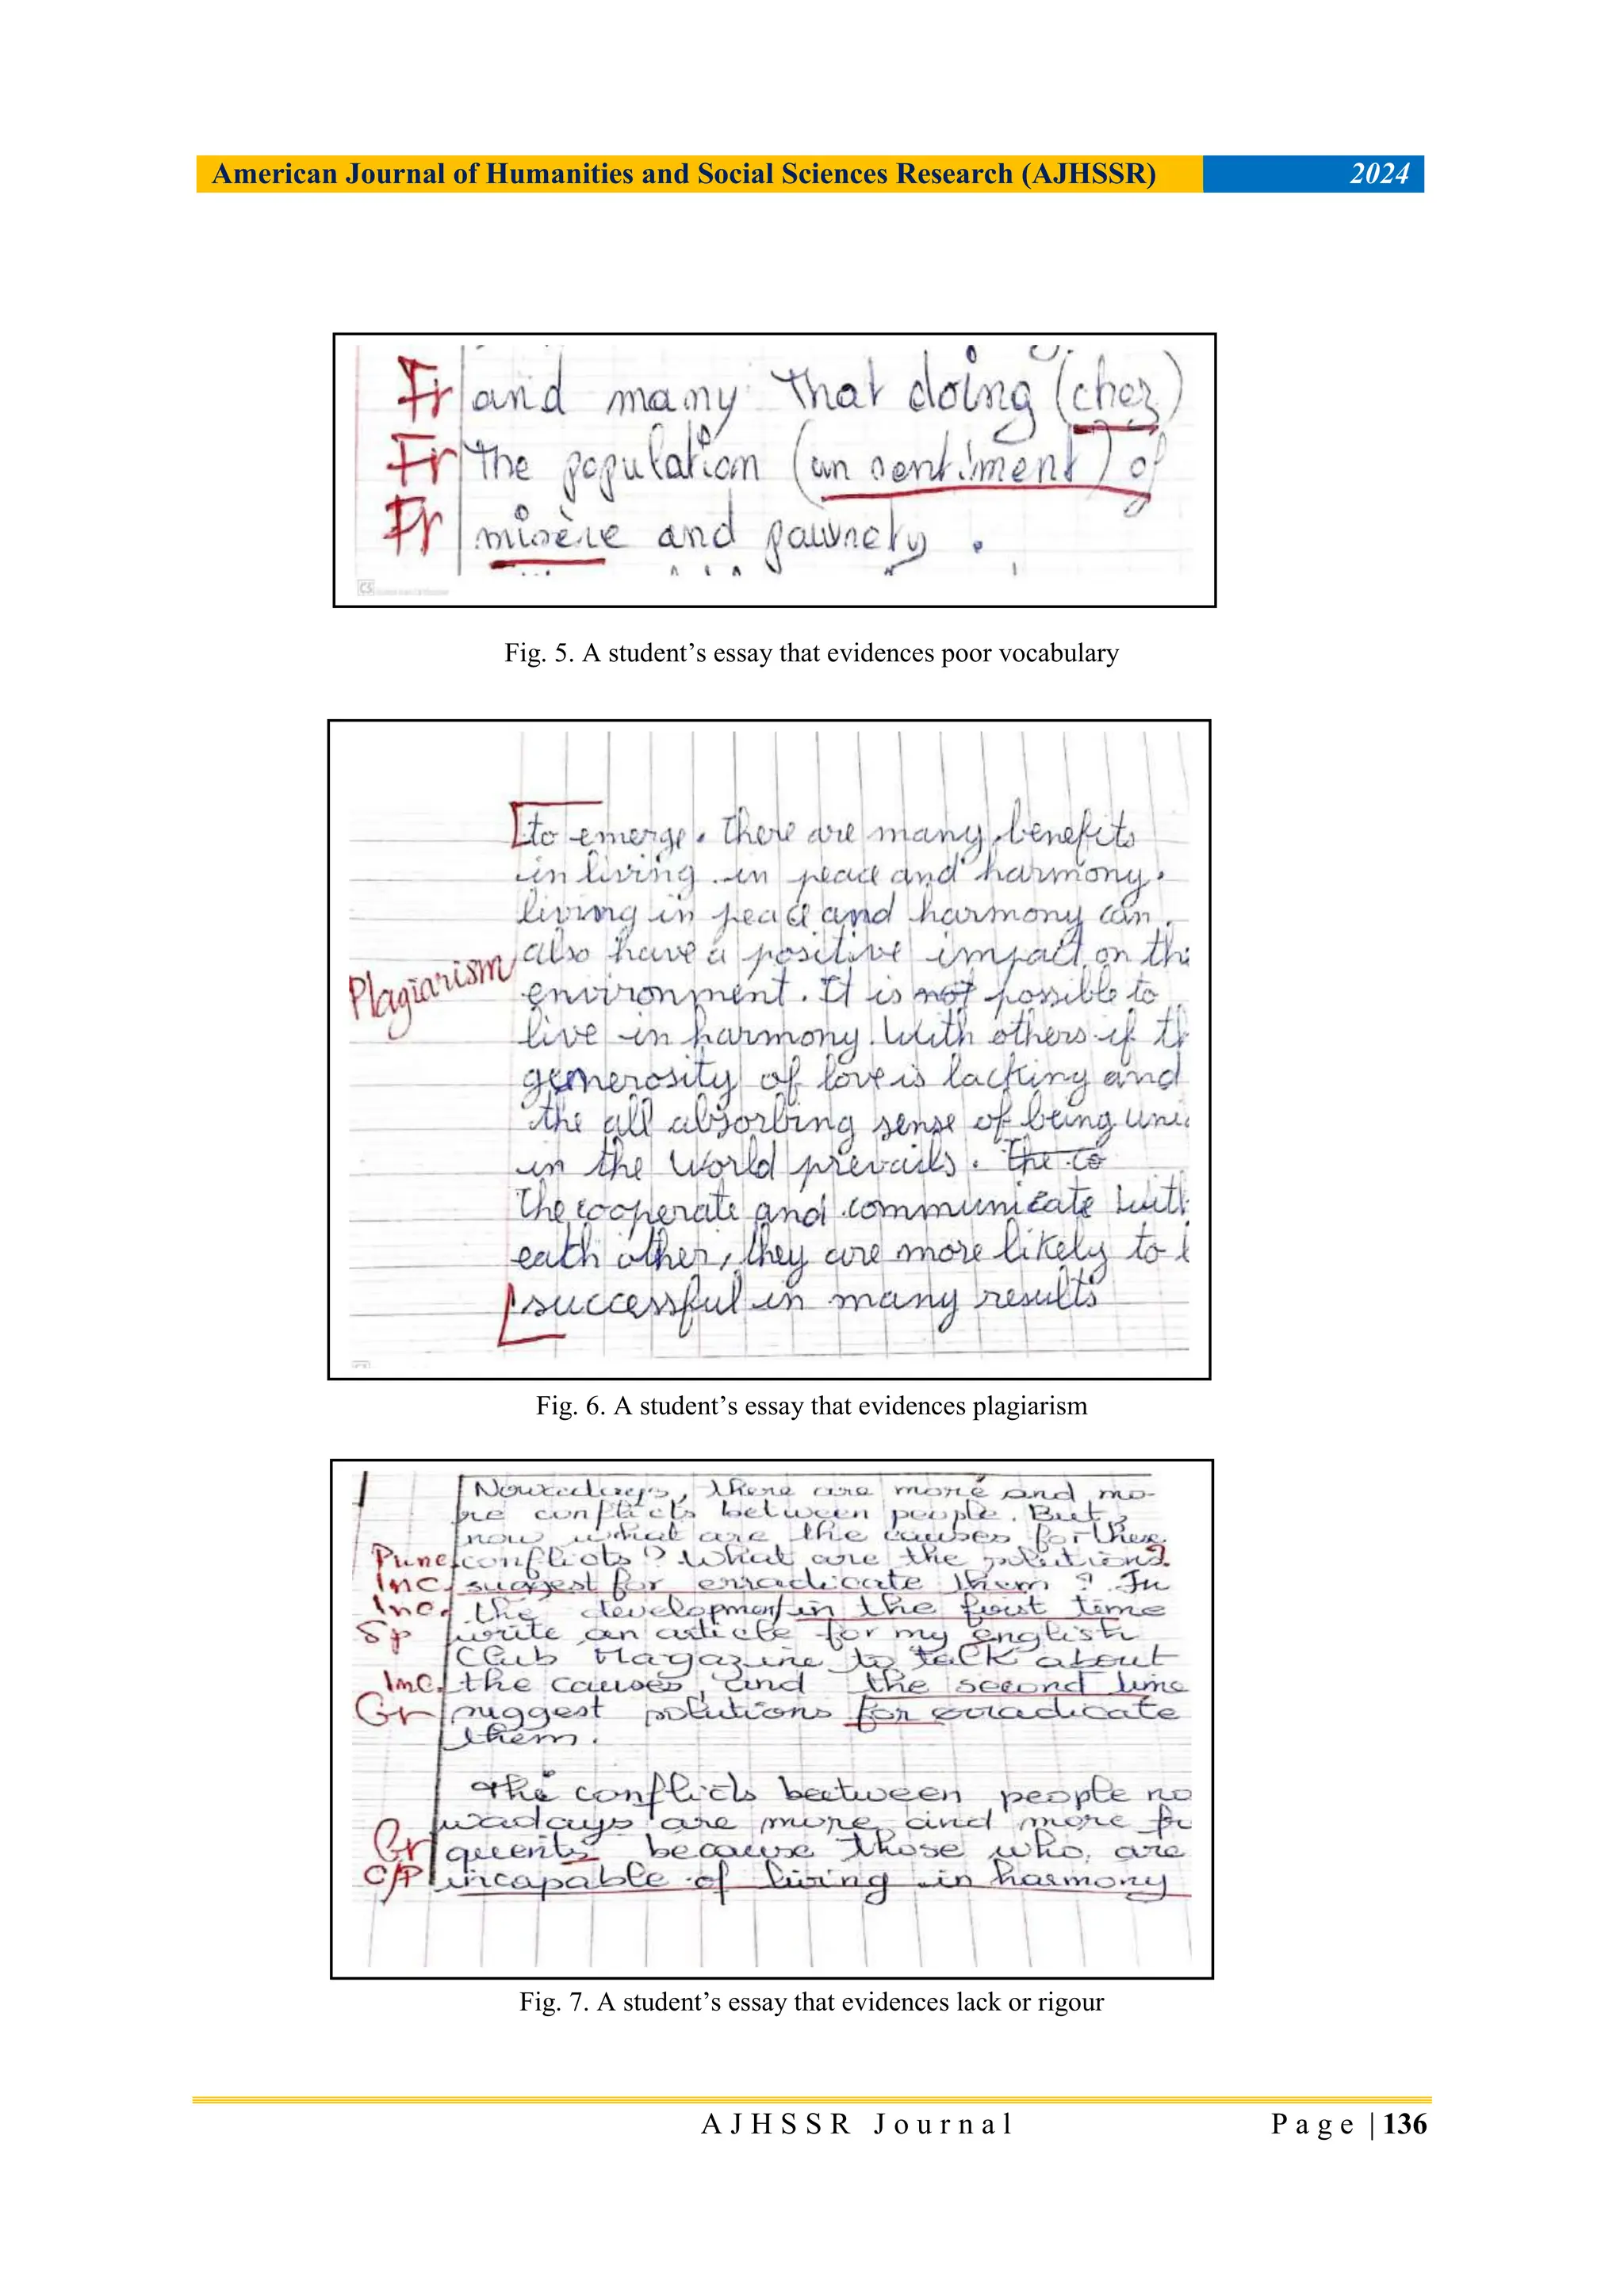 American Journal of Humanities and Social Sciences Research (AJHSSR) 2024
Fr and many that doing (chez)
Fr The population (un sentiment) of
Fr misère and pauvrety .
CS
Fig. 5. A student’s essay that evidences poor vocabulary
to emerge. There are many benefits
in living in peace and harmony.
living in peace and harmony can
also have a positive impact on the
Plagiarism
environment. It is not possible to
live in harmony with others if th
generosity of love is lacking and
the all absorbing sense of being uni
in the world prevails. The co
The cooperate and communicate with
eath other, they are more likely to
successful in many results
Fig. 6. A student’s essay that evidences plagiarism
Nowadays, there are more and mo-
re conflicts between people. But,
now what are the causes for these
Punc. conflicts? What are the solutions?
Inc. suggest for erradicate them ? In
Inc. the development in the first time
Sp write an article for my english
Club Magazine to talk about
Inc. the causes, and the second time
Gr suggest solutions for erradicate
them.
The conflicts beetween people no
wadays are more and more fr
Gr quents because those who are
C/P incapable of living in harmony
Fig. 7. A student’s essay that evidences lack or rigour
AJHSSR Journal Page | 136